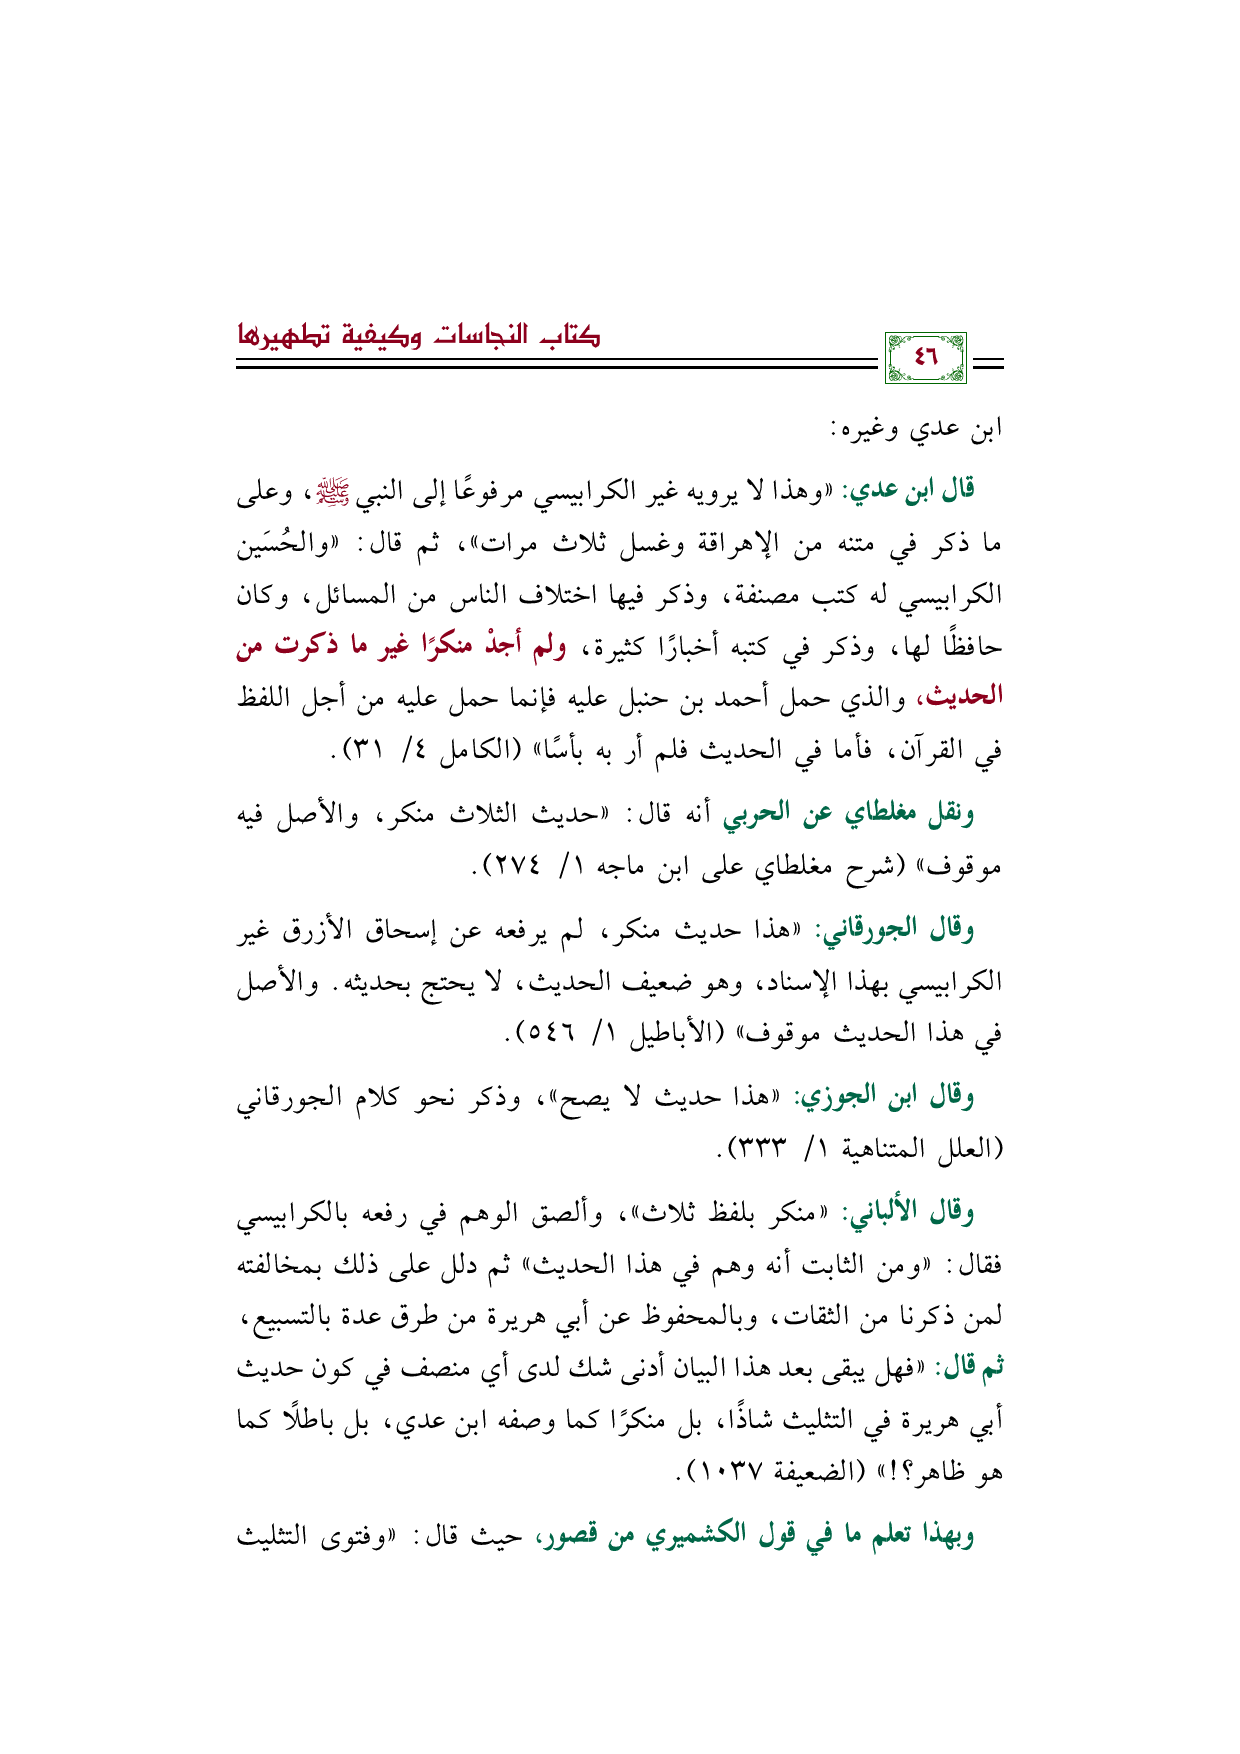 كتاب النجاسات وكيفية تطهيرها
٤٦
ابن عدي وغيره:
قال ابن عدي: «وهذا لا يرويه غير الكرابيسي مرفوعًا إلى النبي ﷺ، وعلى
ما ذكر في متنه من الإهراقة وغسل ثلاث مرات»، ثم قال: «والحُسَين
الكرابيسي له كتب مصنفة، وذكر فيها اختلاف الناس من المسائل، وكان
حافظًا لها، وذكر في كتبه أخبارًا كثيرة، ولم أجدْ منكرًا غير ما ذكرت من
الحديث، والذي حمل أحمد بن حنبل عليه فإنما حمل عليه من أجل اللفظ
في القرآن، فأما في الحديث فلم أر به بأسًا» (الكامل ٤/ ٣١).
ونقل مغلطاي عن الحربي أنه قال: «حديث الثلاث منكر، والأصل فيه
موقوف» (شرح مغلطاي على ابن ماجه ١/ ٢٧٤).
وقال الجورقاني: «هذا حديث منكر، لم يرفعه عن إسحاق الأزرق غير
الكرابيسي بهذا الإسناد، وهو ضعيف الحديث، لا يحتج بحديثه. والأصل
في هذا الحديث موقوف» (الأباطيل ١/ ٥٤٦).
وقال ابن الجوزي: «هذا حديث لا يصح»، وذكر نحو كلام الجورقاني
(العلل المتناهية ١/ ٣٣٣).
وقال الألباني: «منكر بلفظ ثلاث»، وألصق الوهم في رفعه بالكرابيسي
فقال: «ومن الثابت أنه وهم في هذا الحديث» ثم دلل على ذلك بمخالفته
لمن ذكرنا من الثقات، وبالمحفوظ عن أبي هريرة من طرق عدة بالتسبيع،
ثم قال: «فهل يبقى بعد هذا البيان أدنى شك لدى أي منصف في كون حديث
أبي هريرة في التثليث شاذًا، بل منكرًا كما وصفه ابن عدي، بل باطلًا كما
هو ظاهر؟!» (الضعيفة ١٠٣٧).
وبهذا تعلم ما في قول الكشميري من قصور، حيث قال: «وفتوى التثليث